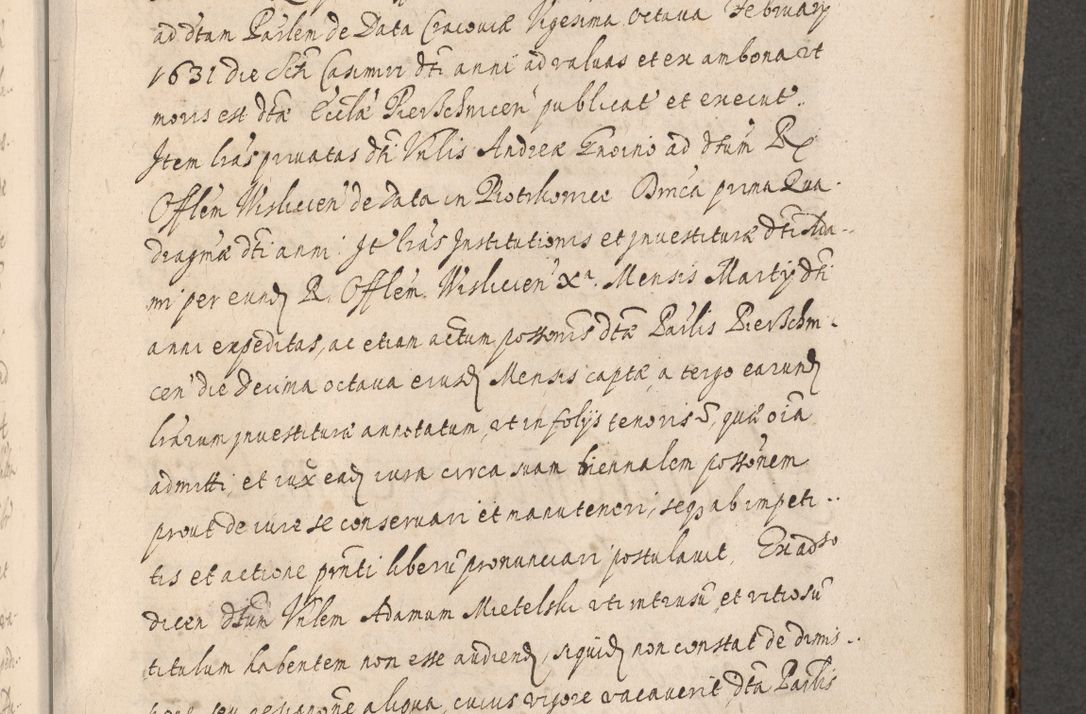 ad dtam Parlem de Data Cracoviæ Vigesima Octava February
1631 die Scti Casimiri dti anni ad valvas et ex ambona ut
moris est dtæ Ecclæ Pierschnicen publicat et execut.
Item lras privatas dti Vnlis Andreæ Gnoino ad dtum R
Offlem Wislicien de Data in Piotrkowice Dnica prima Qua-
dragmæ dti anni. It lras Institutionis et investituræ dti Ada-
mi per eund R. Offlem Wislicien Xa. Mensis Martij dti
anni expeditas, ac etiam actum possonis dtæ Parlis Pierschni-
cen die decima octava eiusd Mensis captæ, a tergo earund
lrarum investituræ annotatum, ut in folijs tenoris, quæ oia
admitti, et iux ead iura circa suam biennalem possonem
prout de iure se conservari et manuteneri, seq ab impeti-
tis et actione pnti liberu pronunciari postulavit, Ex adso
dicen dtum Vnlem Adamum Mietelski uti intrusu, et vitiosu
titulum habentem non esse audiend, siquid non constat de dimis-
aliqua, cuius vigore vacaverit dta Parlis